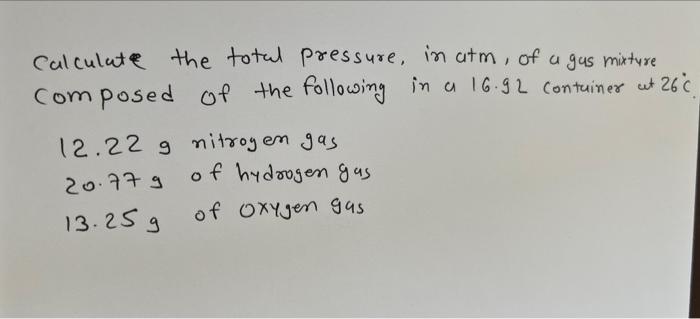 Calculate the total pressure, in atm, of a gas mixture
Composed of the following in a 16.9L Container at 26°C.
12.22 g nitrogen gas
20.77 g of hydrogen gas
13.25 g of oxygen gas